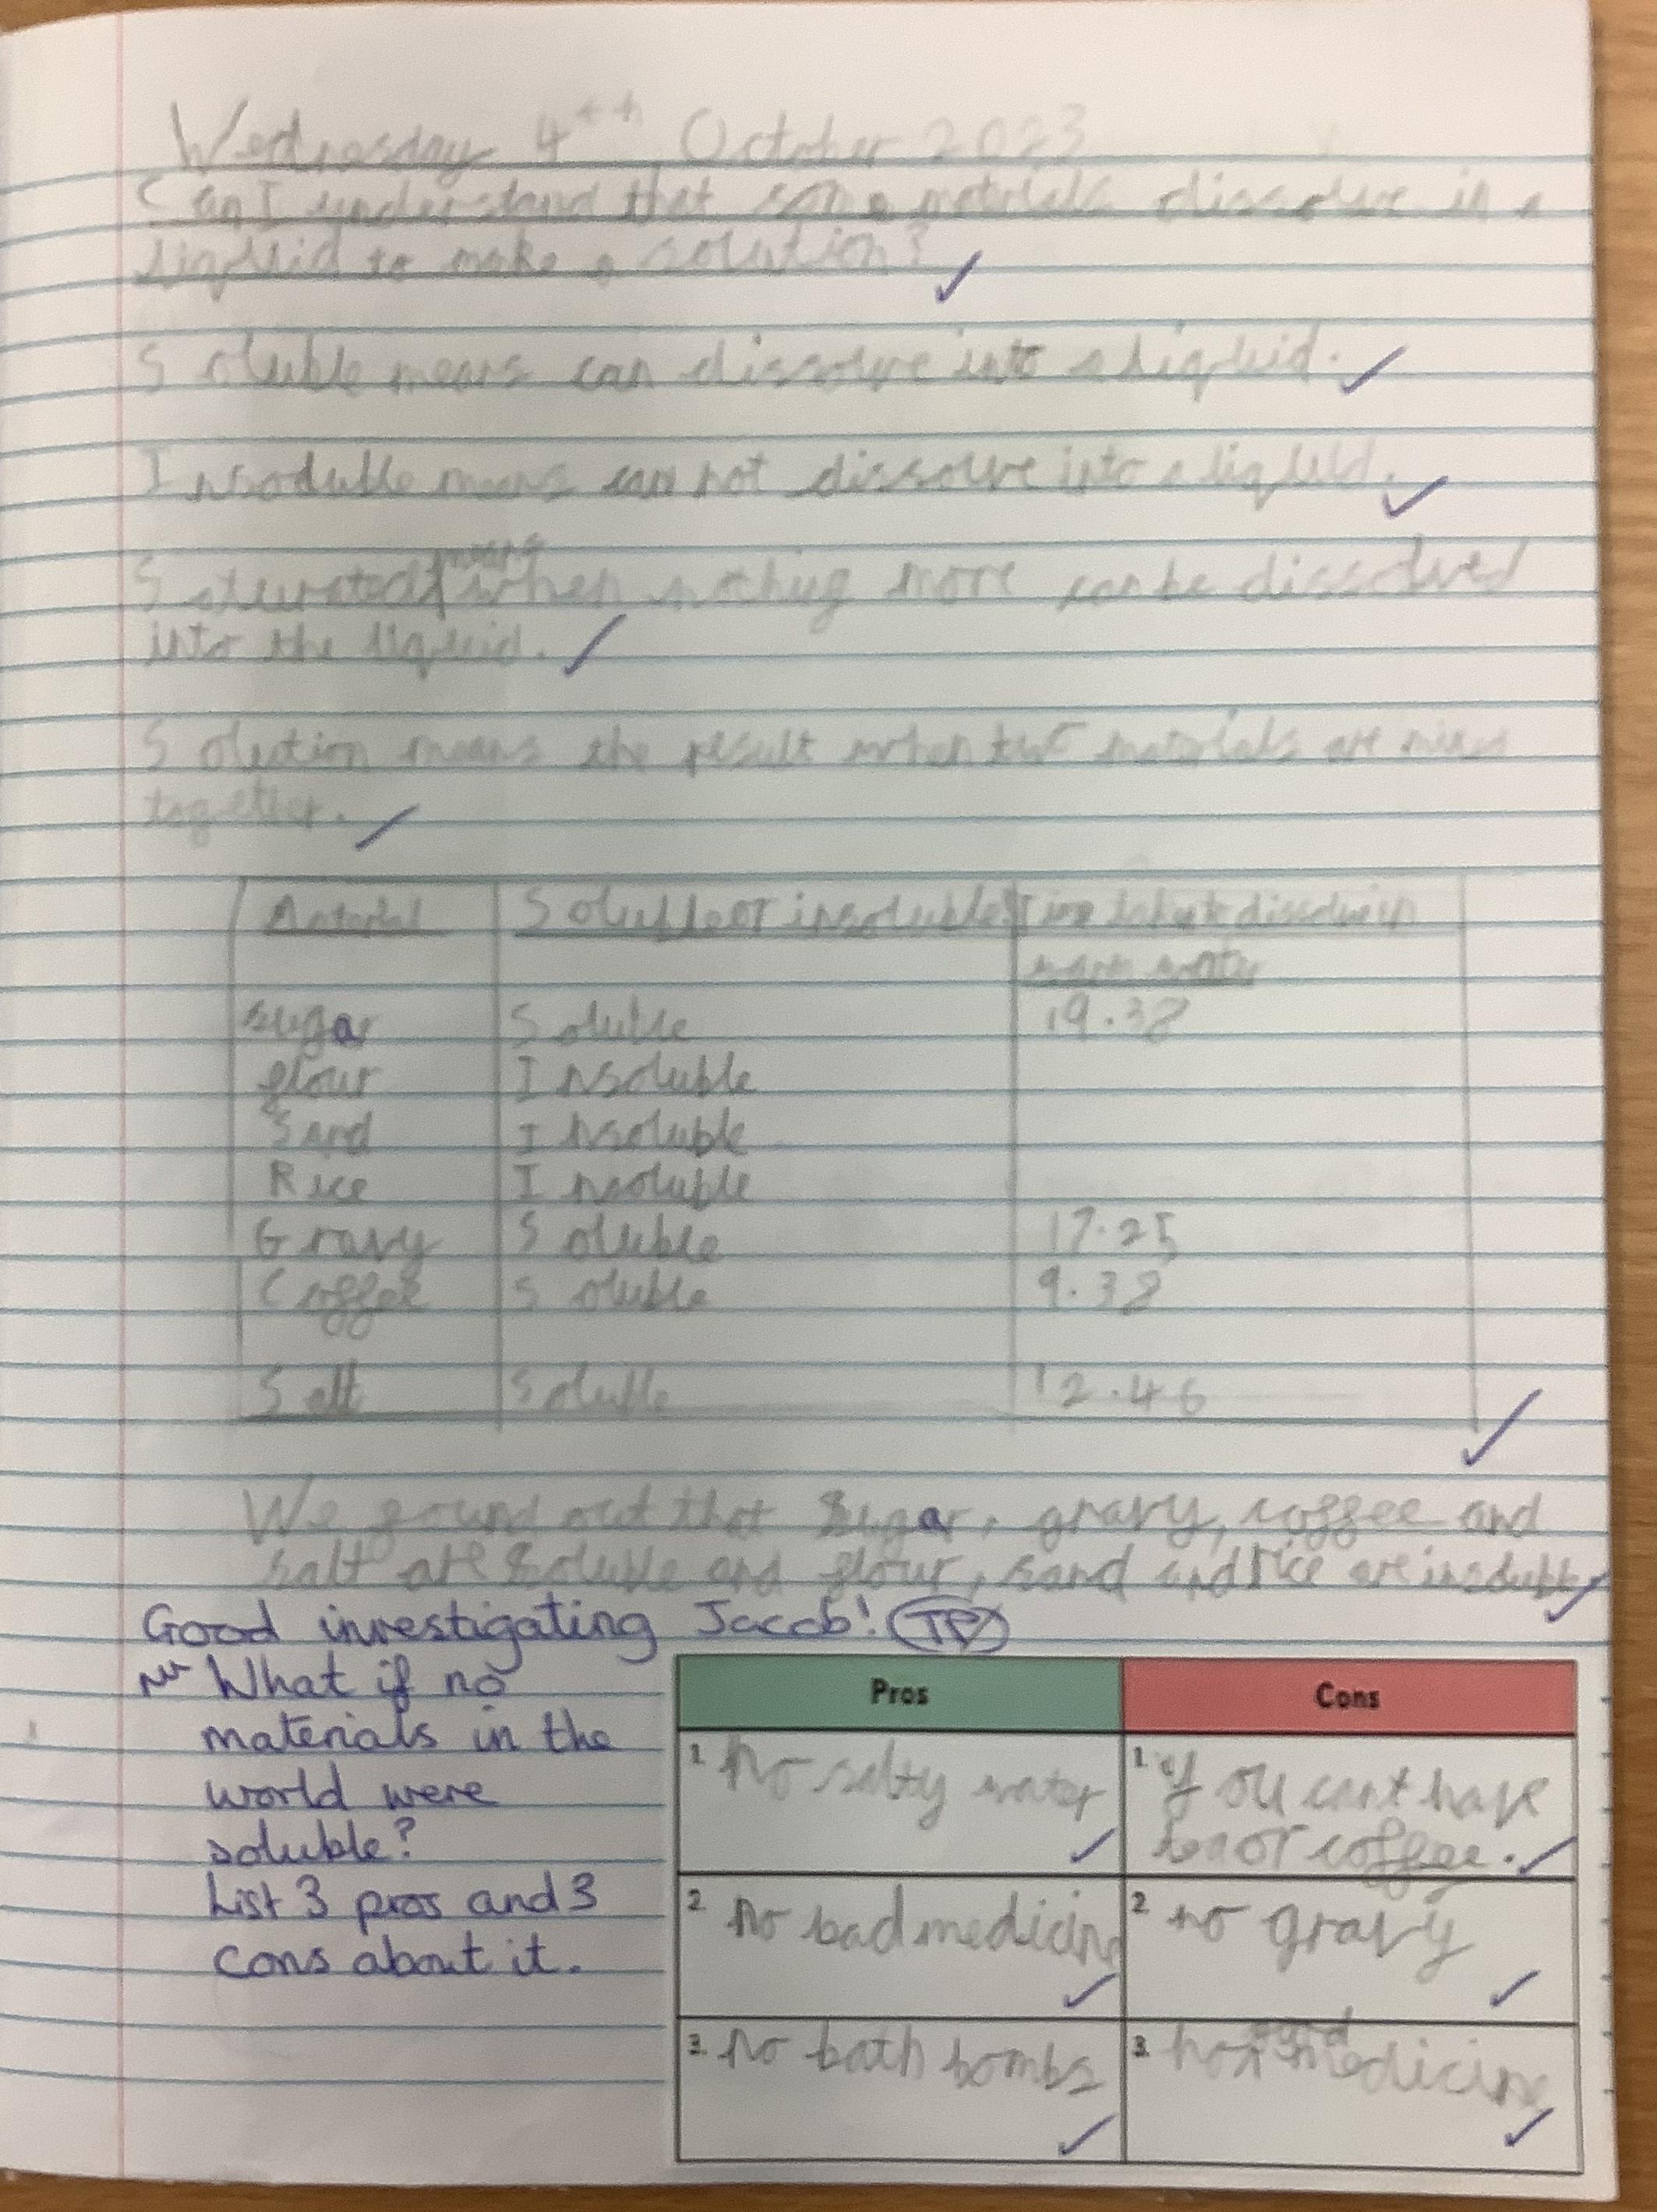 Wednesday 4th October 2023
Can I understand that some materials dissolve in a
liqueid to make a solution?
Soluble means can dissolve into a liqueid.
Insoluble means can not dissolve into a liqueid.
Saturated means when nothing more can be dissolved
into the liqueid.
Solution means the result when two materials are mixed
together.
Material Soluble or insoluble Time taken to dissolve in
warm water
sugar Soluble 19.38
flour Insoluble
Sand Insoluble
Rice Insoluble
Gravy Soluble 17.25
Coffee Soluble 9.38
Salt Soluble 12.46
We found out that Sugar, gravy, coffee and
salt are Soluble and flour, sand and Rice are insoluble
Good investigating Jacob!
What if no
materials in the
world were
soluble?
List 3 pros and 3
cons about it.
Pros Cons
1. No salty water
1. you cant have
tea or coffee.
2. no bad medicine
2. no gravy
3. no bath bombs
3. no good medicine